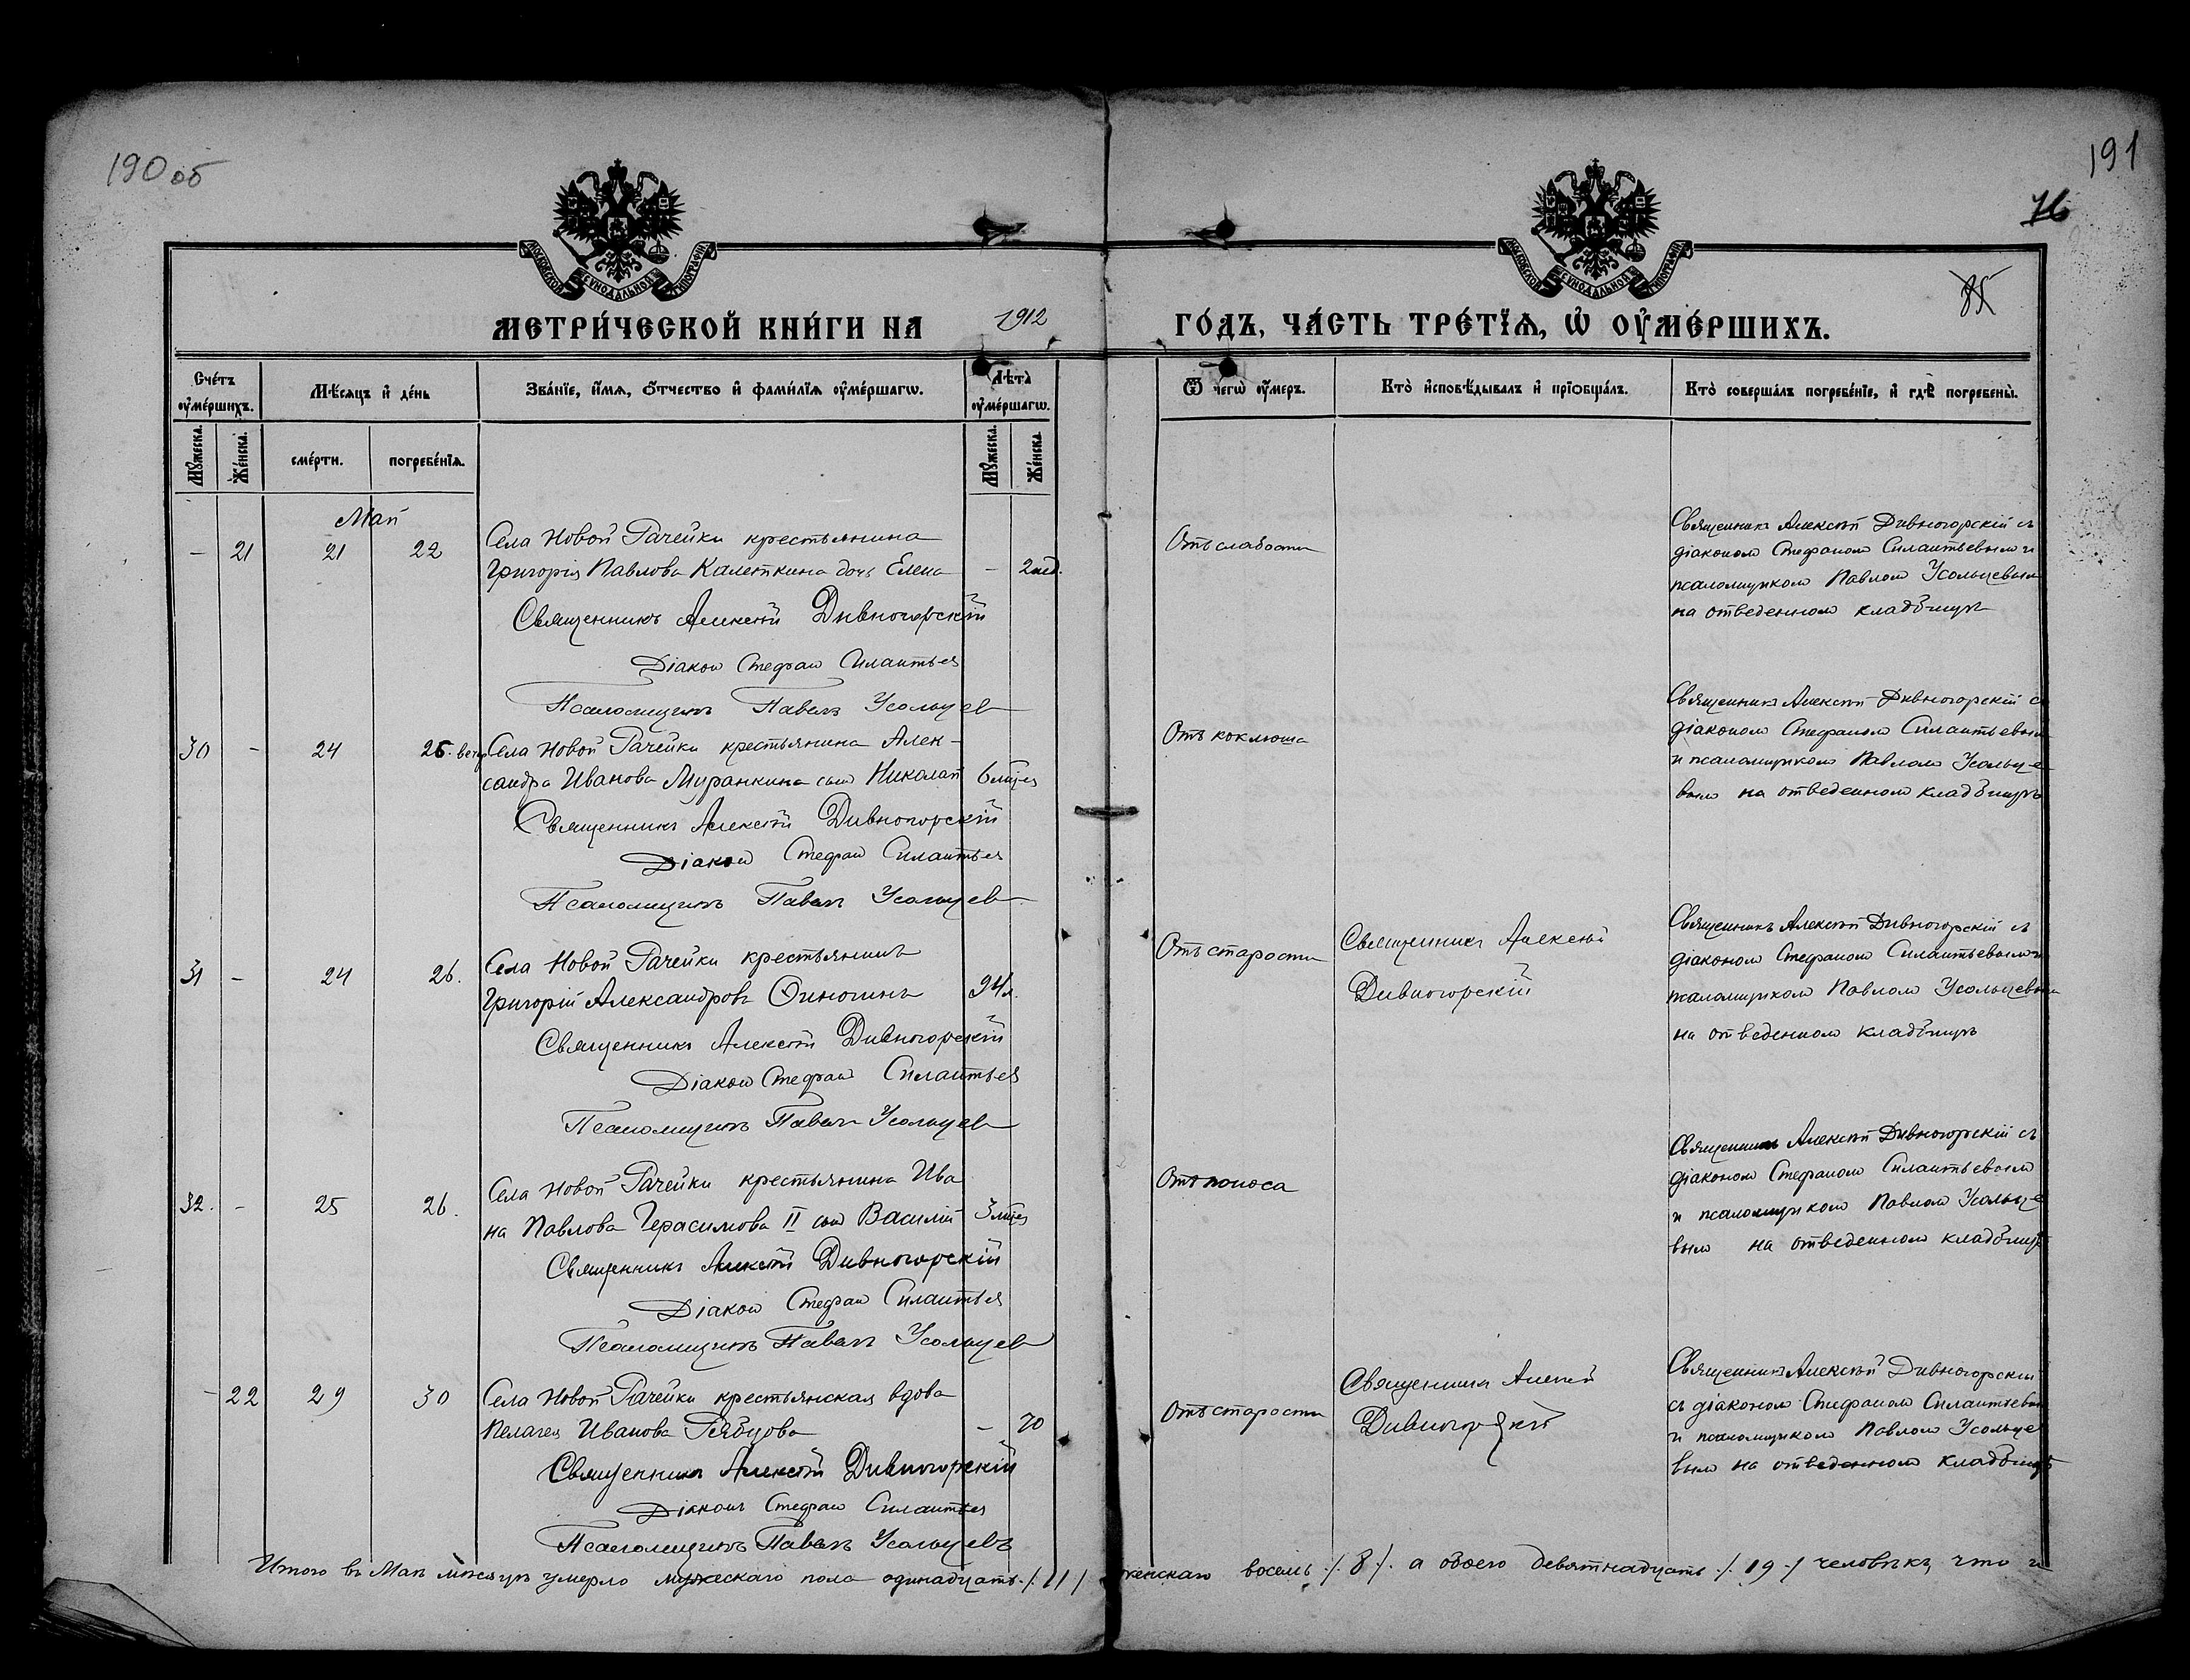 190 об
191
76
85
МОСКОВСКОЙ СѴНОДАЛЬНОЙ ТИПОГРАФІИ
МОСКОВСКОЙ СѴНОДАЛЬНОЙ ТИПОГРАФІИ
МЕТРИ́ЧЕСКОЙ КНИ́ГИ НА 1912 ГО́ДЪ, ЧА́СТЬ ТРЕ́ТЇѦ, Ѡ҆ ОУ҆МЕ́РШИХЪ.
Сче́тъ оу҆ме́ршихъ.
Мѣ́сѧцъ и҆ де́нь
Зва́нїе, и҆́мѧ, ѻ҆́тчество и҆ фами́лїѧ оу҆ме́ршагѡ.
Лѣта̀ оу҆ме́ршагѡ.
Ѿ чегѡ̀ оу҆́меръ.
Кто̀ и҆сповѣ́дывалъ и҆ прїѡбща́лъ.
Кто̀ соверша́лъ погребе́нїе, и҆ гдѣ̀ погребены̀.
Мꙋ́жеска.
Же́нска.
сме́рти.
погребе́нїѧ.
Мꙋ́жеска.
Же́нска.
Май
– 21 21 22
Села Новой Рачейки крестьянина
Григорія Павлова Калеткина дочь Елена – 2 нед.
Священникъ Алексѣй Дивногорскій
Діакон Стефан Силантьев
Псаломщикъ Павелъ Усольцев
Отъ слабости
Священникъ Алексѣй Дивногорскій съ
діакономъ Стефаномъ Силантьевымъ и
псаломщикомъ Павломъ Усольцевым
на отведенномъ кладбищѣ
30 – 24 26.
Села Новой Рачейки крестьянина Алек-
сандра Иванова Муранкина сын Николай 6 мцев
Священникъ Алексѣй Дивногорскій
Діакон Стефан Силантьев
Псаломщикъ Павелъ Усольцев
Отъ коклюша
Священникъ Алексѣй Дивногорскій с
діакономъ Стефаномъ Силантьевым
и псаломщикомъ Павломъ Усольце
вымъ на отведенномъ кладбищѣ
31 – 24 26.
Села Новой Рачейки крестьянинъ
Григорій Александровъ 94 л.
Священникъ Алексѣй Дивногорскій
Діакон Стефан Силантьев
Псаломщикъ Павелъ Усольцев
Отъ старости
Священникъ Алексѣй
Дивногорскій
Священникъ Алексѣй Дивногорскій съ
діакономъ Стефаномъ Силантьевымъ и
псаломщикомъ Павломъ Усольцевым
на отведенномъ кладбищѣ
32. – 25 26.
Села Новой Рачейки крестьянина Ива
на Павлова Герасимова II сын Василій 3 мцев
Священникъ Алексѣй Дивногорскій
Діакон Стефан Силантьев
Псаломщикъ Павелъ Усольцев
Отъ поноса
Священникъ Алексѣй Дивногорскій съ
діакономъ Стефаномъ Силантьевымъ
и псаломщикомъ Павломъ Усольце
вымъ на отведенномъ кладбищѣ
– 22 29 30
Села Новой Рачейки крестьянская вдова
Пелагея Иванова Рябцова – 70
Священникъ Алексѣй Дивногорскій
Діаконъ Стефан Силантьев
Псаломщикъ Павелъ Усольцевъ
Отъ старости
Священникъ Алексѣй
Дивногорскій
Священникъ Алексѣй Дивногорскій
съ діакономъ Стефаномъ Силантьевым
и псаломщикомъ Павломъ Усольце
вымъ на отведенномъ кладбищѣ
Итого въ Маѣ мѣсяцѣ умерло мужескаго пола одинадцать ./. 11 / женскаго восемь ./. 8 ./. а обоего девятнадцать ./. 19 ./ человѣкъ, что и